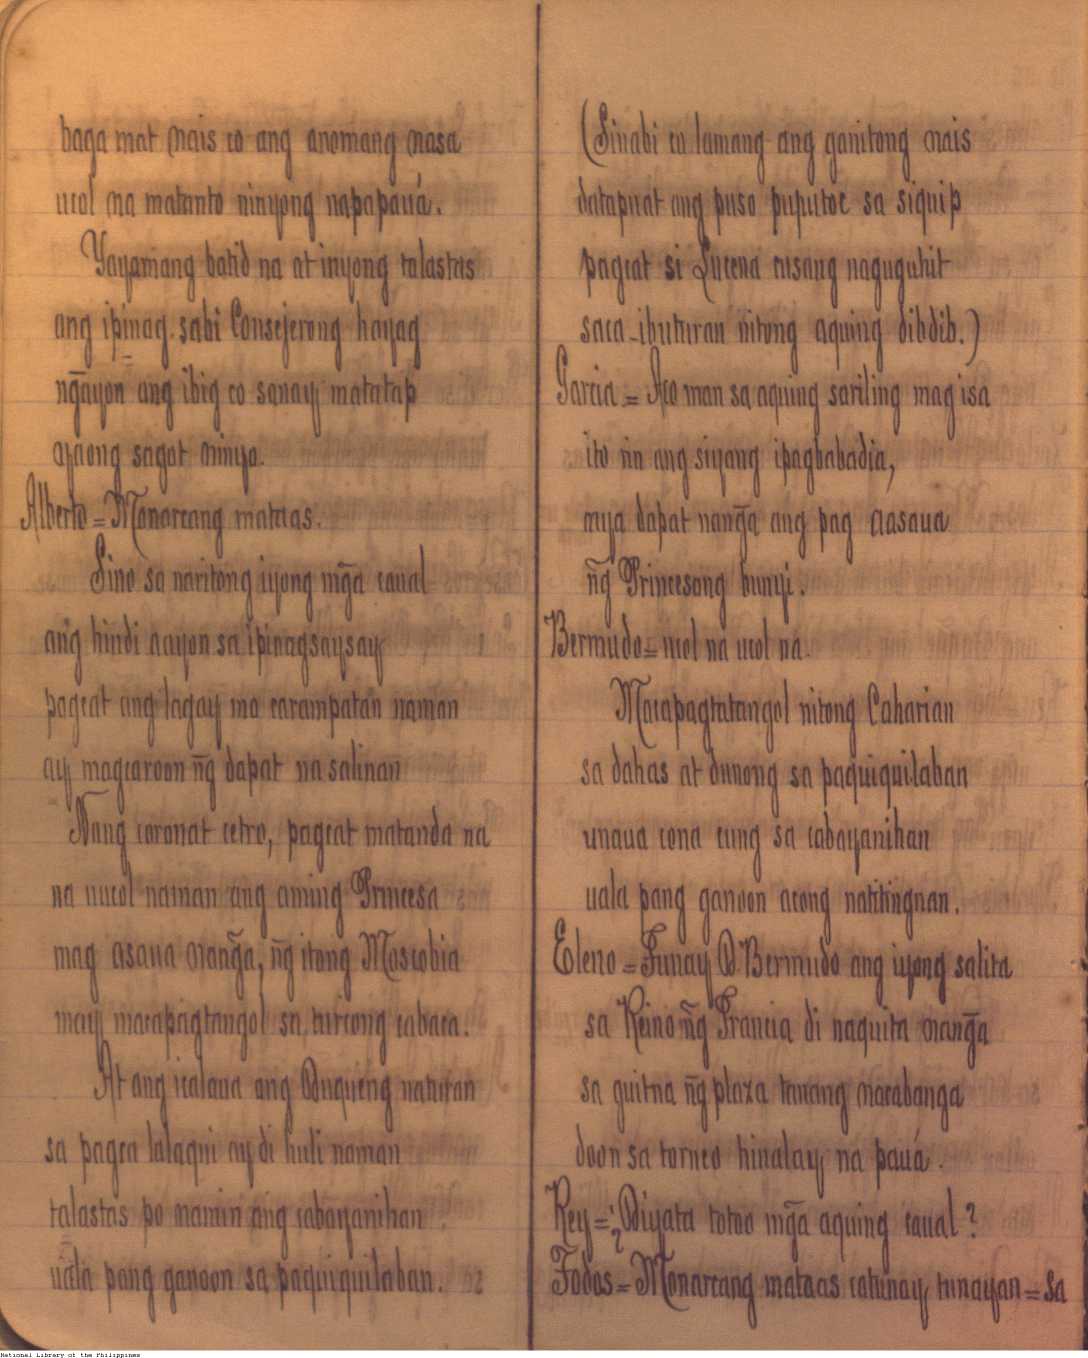 baga mat nais co ang anomang nasa
ucol na matanto ninyong napapauá.
Yayamang batid na at inyong talastas
ang ipinag-sabi Consejerong hayag
n̄gayon ang ibig co sanay matatap
yaong sagot ninyo.
Alberto = Monarcang mataas.
Sino sa naritong iyong mḡa caual
ang hindi aayon sa ipinagsaysay
pagcat ang lagay mo carampatan naman
ay magcaroon n̄g dapat na salinan
Nang coronat cetro, pagcat matanda na
na uucol naman ang aming Princesa
mag asaua nanḡa, n̄g itong Moscobia
may macapagtangol sa turcong cabaca.
At ang icalaua ang Duqueng naturan
sa pagca lalaqui ay di huli naman
talastas po namin ang cabayanihan
uala pang ganoon sa paquiquilaban.
(Sinabi cu lamang ang ganitong nais
datapuat ang puso puputoc sa siquip
pagcat si Lucena cusang naguguhit
saca-ibuturan nitong aquing dibdib.)
Garcia = Aco man sa aquing sariling mag isa
ito rin ang siyang ipagbabadia,
mya dapat nanḡa ang pag aasaua
n̄g Princesang bunyi.
Bermudo = ucol na ucol na.
Macapagtatangol nitong Caharian
sa dahas at dunong sa paquiquilaban
unaua cona cung sa cabayanihan
uala pang ganoon acong natitingnan.
Eleno = Tunay D. Bermudo ang iyong salita
sa Reino n̄g Francia di naquita nanḡa
sa guitna n̄g plaza tanang nacabanga
doon sa torneo hinalay na pauá.
Rey = ¿Diyata totoo mḡa aquing caual?
Todos = Monarcang mataas catunay tunayan = Sa
National Library of the Philippines